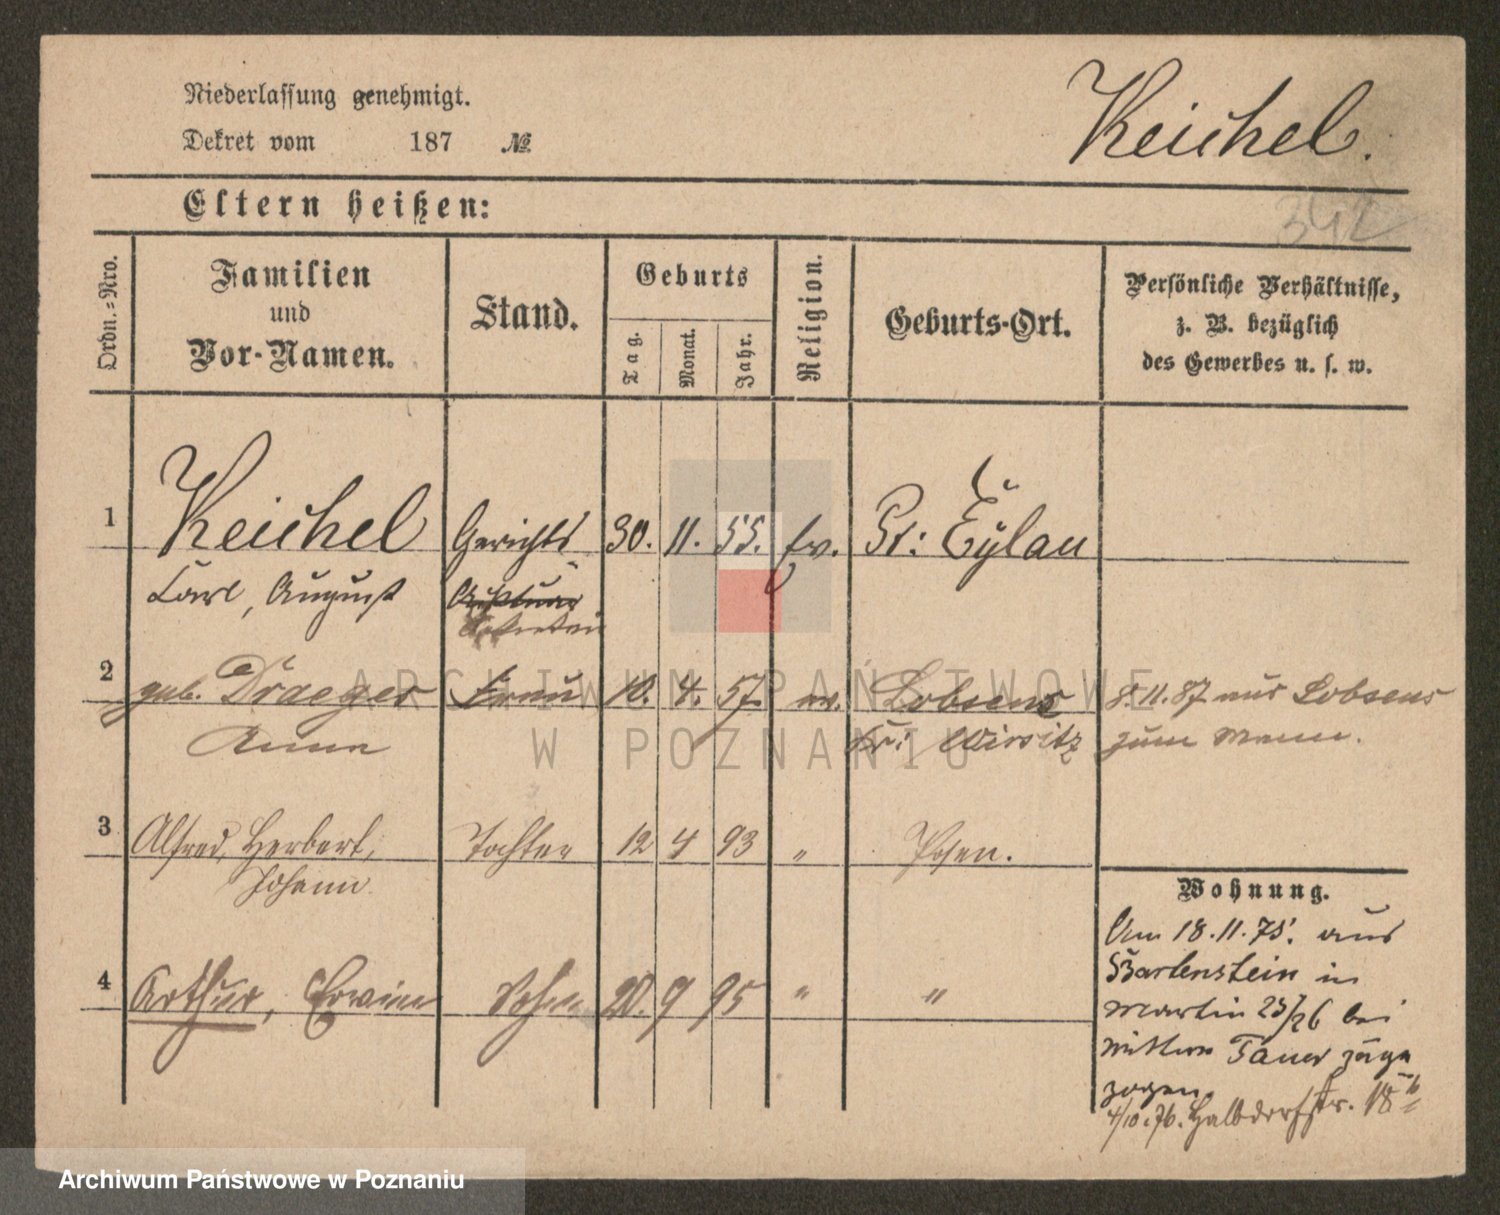 Niederlassung genehmigt.
Dekret vom 187 №
Keichel.
342
Eltern heißen:
Ordn.=Nro.
Familien
und
Vor-Namen.
Stand.
Geburts
Tag.
Monat.
Jahr.
Religion.
Geburts-Ort.
Persönliche Verhältnisse,
z. B. bezüglich
des Gewerbes u. s. w.
1 Keichel Gerichts 30. 11. 55. ev. Dt: Eylau
Carl, August Aktuar
Sekretär
2 geb. Draeger Frau 10. 4. 57. ev. Lobsens 8.11.87 aus Lobsens
Anna Kr: Wirsitz zum Mann.
3 Alfred, Herbert, Tochter 12 4 93 " Posen.
Johann
Wohnung.
Am 18.11.75. aus
Bartenstein in
4 Arthur, Erwin Sohn 20. 9 95 " "
Martin 25/26 bei
Tauer zuge
zogen.
4/10.76. Halbdorfstr. 18
ARCHIWUM PAŃSTWOWE
W POZNANIU
Archiwum Państwowe w Poznaniu